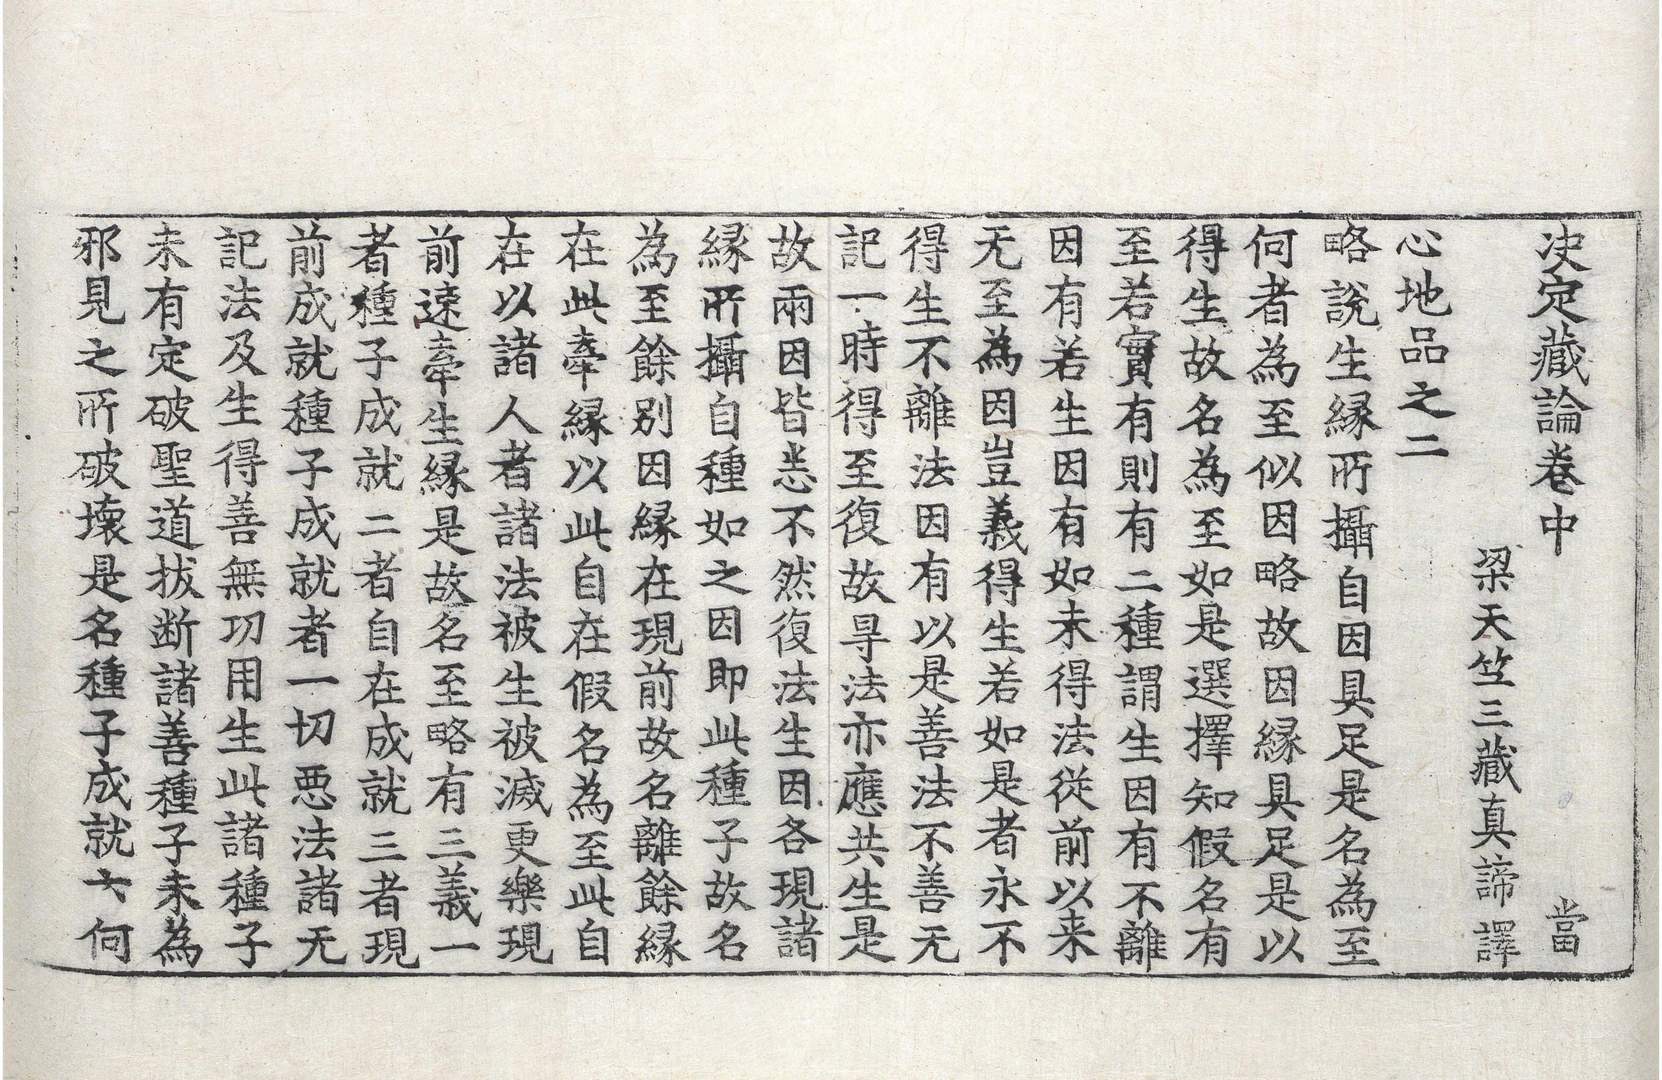 决定藏論卷中　當
梁天竺三藏真諦譯
心地品之二
略説生縁所攝自因具足是名為至
何者為至似因略故因縁具足是以
得生故名為至如是選擇知假名有
至若實有則有二種謂生因有不離
因有若生因有如未得法從前以来
无至為因豈義得生若如是者永不
得生不離法因有以是善法不善无
記一時得至復故㝵法亦應共生是
故兩因皆悉不然復法生因各現諸
縁所攝自種如之因即此種子故名
為至餘别因縁在現前故名離餘縁
在此牽縁以此自在假名為至此自
在以諸人者諸法被生被滅更樂現
前速牽生縁是故名至略有三義一
者種子成就二者自在成就三者現
前成就種子成就者一切惡法諸无
記法及生得善無功用生此諸種子
未有定破聖道拔断諸善種子未為
邪見之所破壊是名種子成就云何